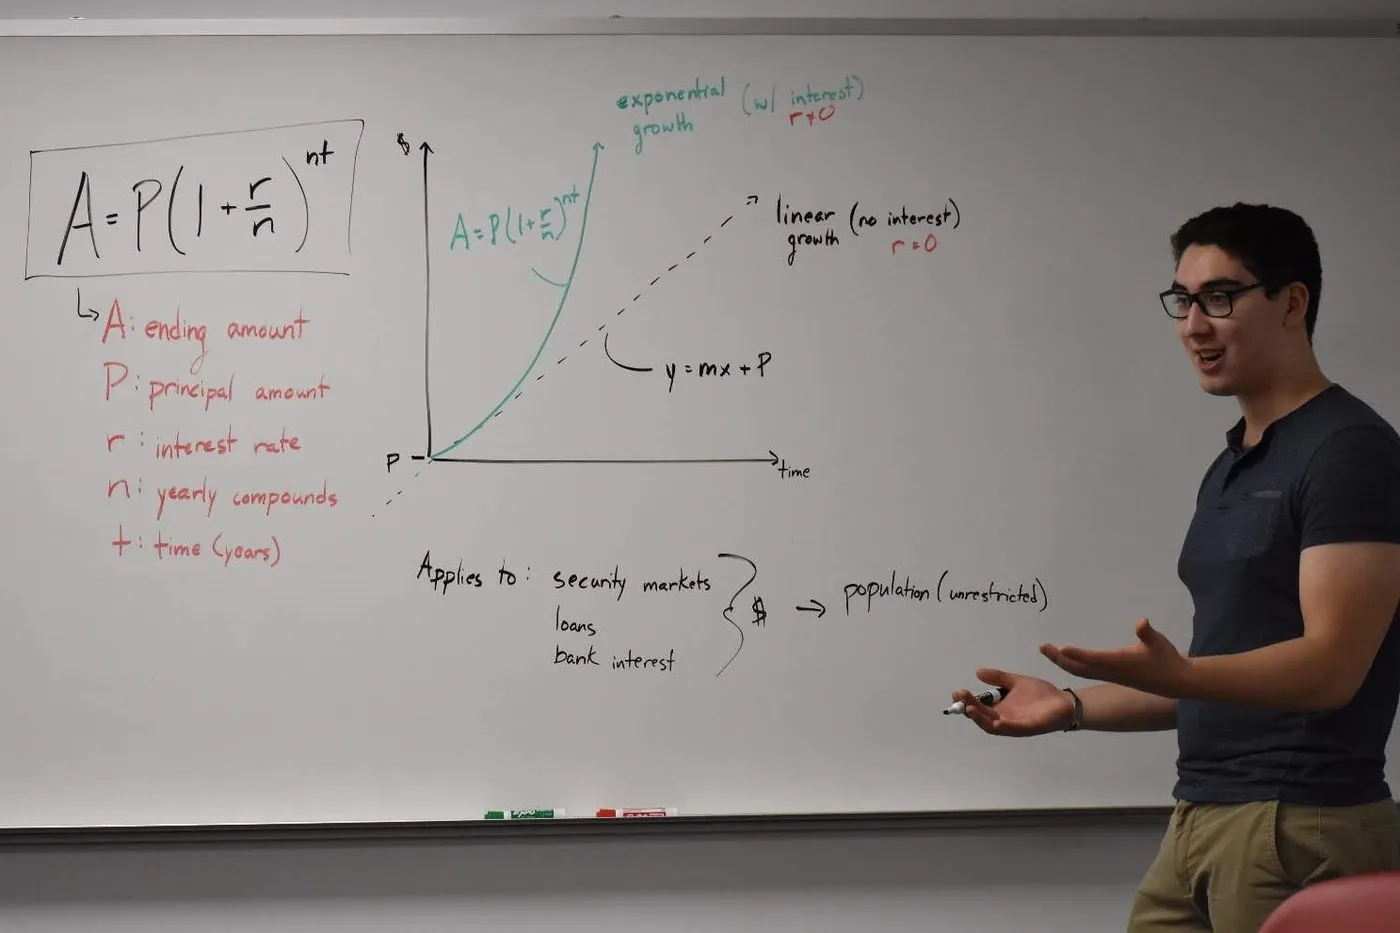 A = P(1 + r/n)^nt
A: ending amount
P: principal amount
r: interest rate
n: yearly compounds
t: time (years)
$
exponential growth (w/ interest)
r≠0
A = P(1 + r/n)^nt
linear growth (no interest)
r = 0
y = mx + P
P
time
Applies to: security markets
loans
bank interest
$ → population (unrestricted)